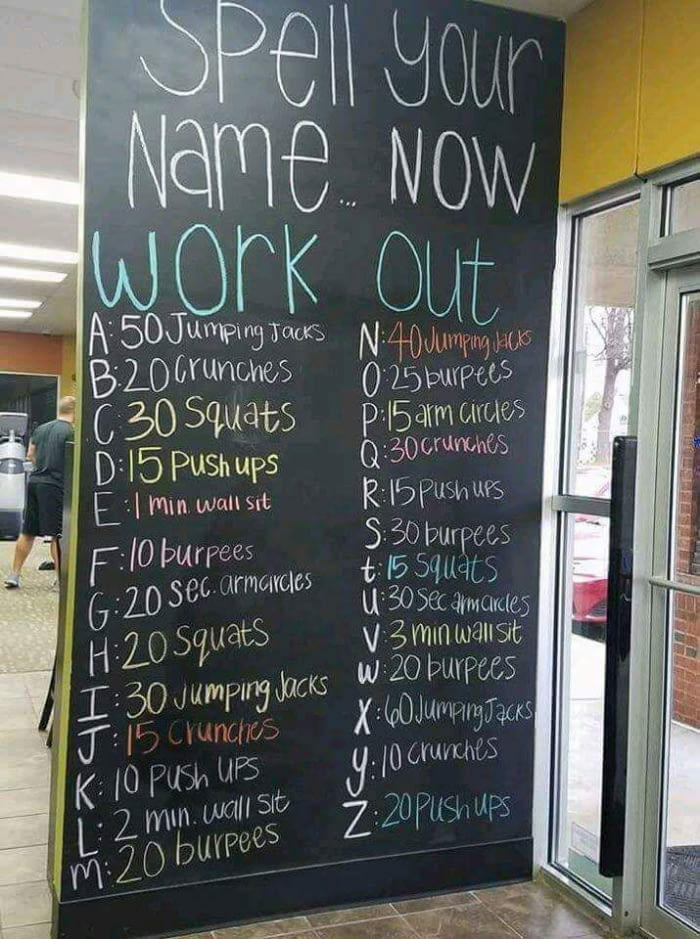 Spell your
Name... NOW
work out
A: 50 Jumping Jacks
B: 20 Crunches
C: 30 Squats
D: 15 Push ups
E: 1 min. wall sit
F: 10 burpees
G: 20 sec. arm circles
H: 20 Squats
I: 30 Jumping Jacks
J: 15 Crunches
K: 10 Push ups
L: 2 min. wall sit
m: 20 burpees
N: 40 Jumping Jacks
O: 25 burpees
P: 15 arm circles
Q: 30 crunches
R: 15 Push ups
S: 30 burpees
t: 15 Squats
u: 30 Sec arm circles
V: 3 min wall sit
W: 20 burpees
X: 60 Jumping Jacks
y: 10 crunches
Z: 20 Push ups